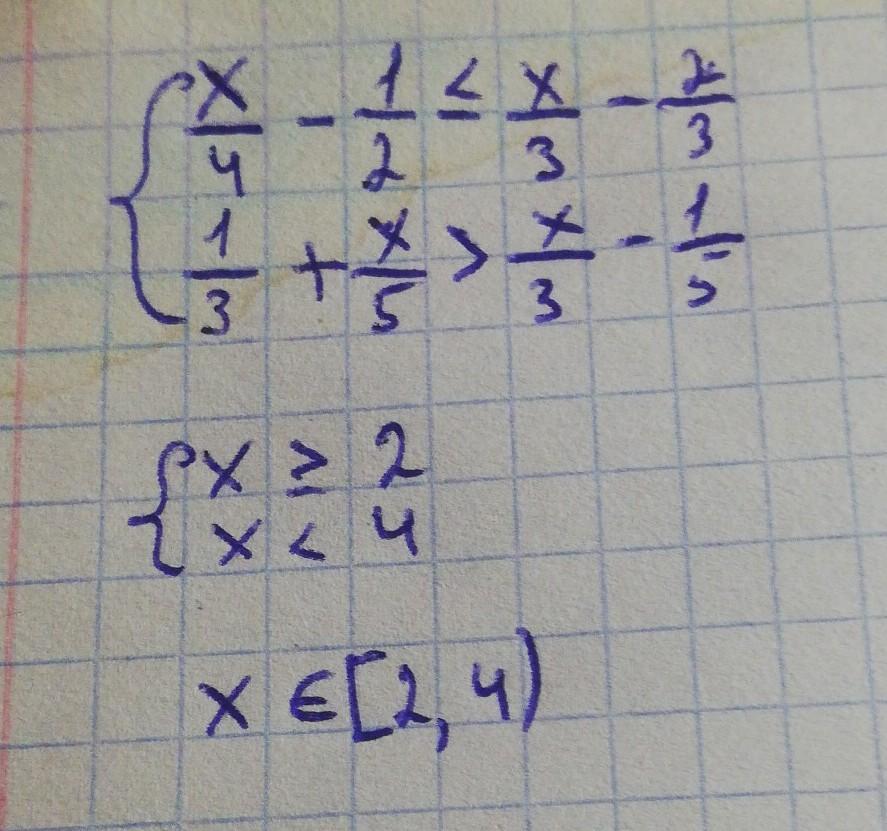 x/4 - 1/2 ≤ x/3 - 2/3
1/3 + x/5 > x/3 - 1/5
x ≥ 2
x < 4
x ∈ [2, 4)